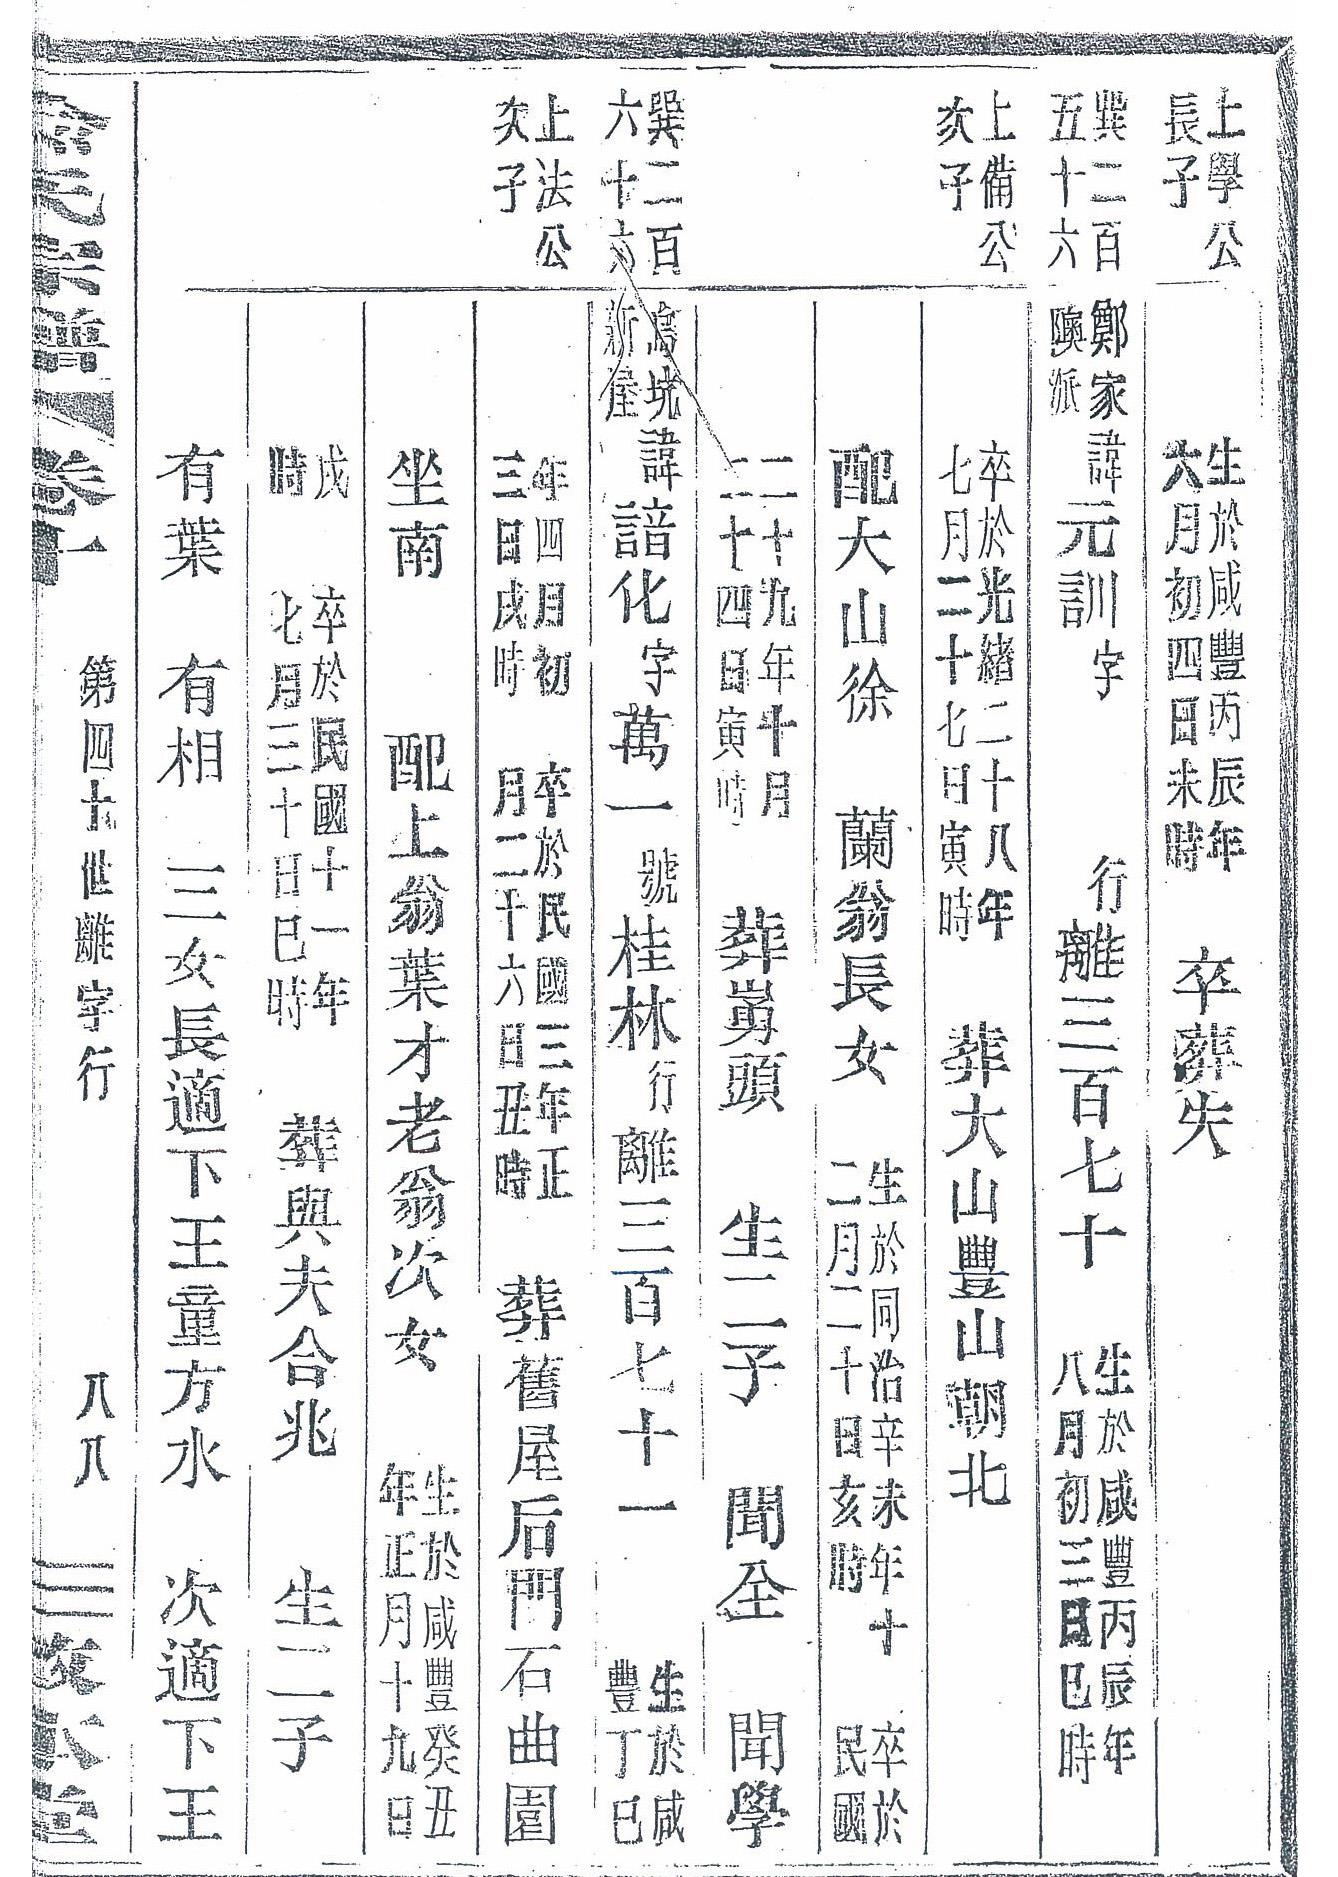 上學公
長子
生於咸豐丙辰年
六月初四日未時
卒葬失
巽二百
五十六
鄭家
派
諱元訓字
行離三百七十
生於咸豐丙辰年
八月初三日巳時
上備公
次子
卒於光緒二十八年
七月二十七日寅時
葬大山豐山朝北
配大山徐
蘭翁長女
生於同治辛未年十
二月二十日亥時
卒於
民國
二十九年十月
二十四日寅時
葬嵩頭
生二子
聞全
聞學
巽二百
六十六
坑
新屋
諱諳化字萬一號桂林行離三百七十一
生於咸
豐丁巳
上法公
次子
年四月初
三日戌時
卒於民國三年正
月二十六日丑時
葬舊屋后門石曲園
坐南
配上翁葉才老翁次女
生於咸豐癸丑
年正月十九日
戌
時
卒於民國十一年
七月三十日巳時
葬與夫合兆
生二子
有葉
有相
三女長適下王童方水
次適下王
第四十世離字行
八八
宗譜
卷一